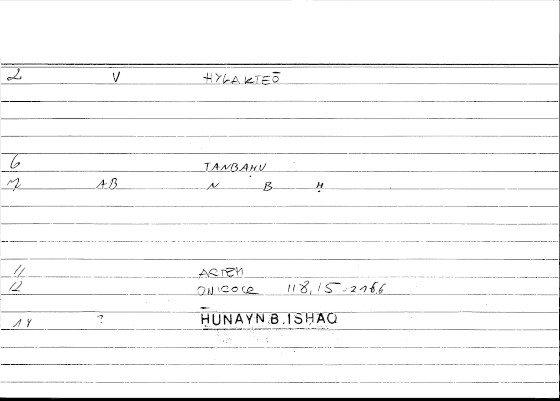 2 V HYLAKTEŌ
6 TANBAḤU
7 AB N B Ḥ
11 ARTEM
12 ONIROCR 118,15-216,6
14 ? HUNAYN.B.ISHAQ